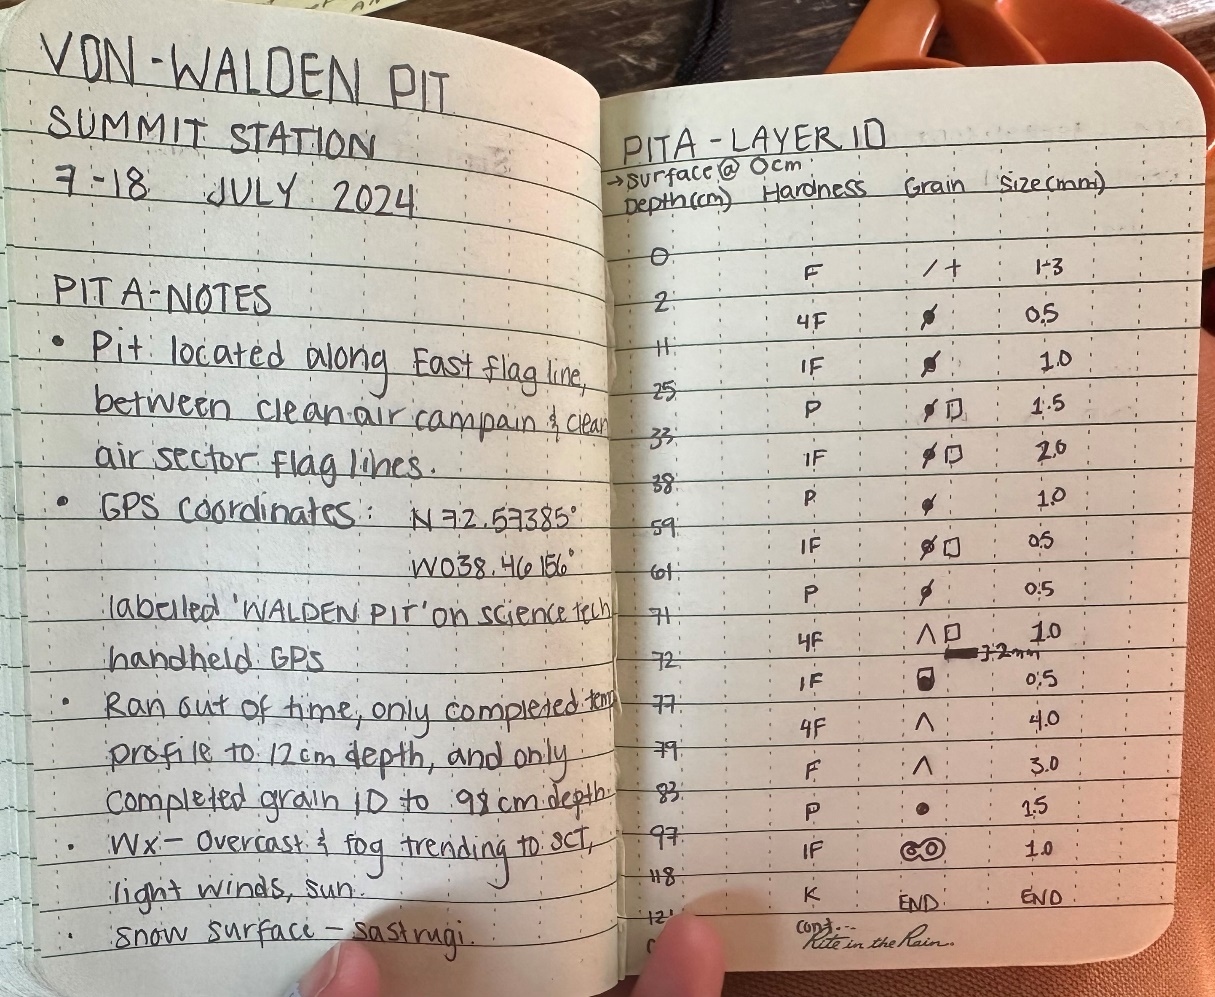 VON-WALDEN PIT
SUMMIT STATION
7-18 JULY 2024
PIT A-NOTES
• Pit located along East flag line,
between clean air campain & clean
air sector flag lines.
• GPS coordinates: N 72.57385°
W038.46156°
labelled 'WALDEN PIT' on science tech
handheld GPS
• Ran out of time, only completed temp
profile to 12cm depth, and only
completed grain ID to 98cm depth.
• Wx- Overcast & fog trending to SCT,
light winds, sun.
• Snow surface - sastrugi.
PIT A - LAYER ID
→ surface @ 0cm
Depth(cm) Hardness Grain Size(mm)
0
F / + 1-3
2
4F 0.5
11
1F 1.0
25
P 1.5
33
1F 2.0
38
P 1.0
59
1F 0.5
61
P 0.5
71
4F Λ □ 1.0
72
1F 0.5
77
4F Λ 4.0
79
F Λ 3.0
83
P • 1.5
97
1F 1.0
118
K END END
cont...
Rite in the Rain.